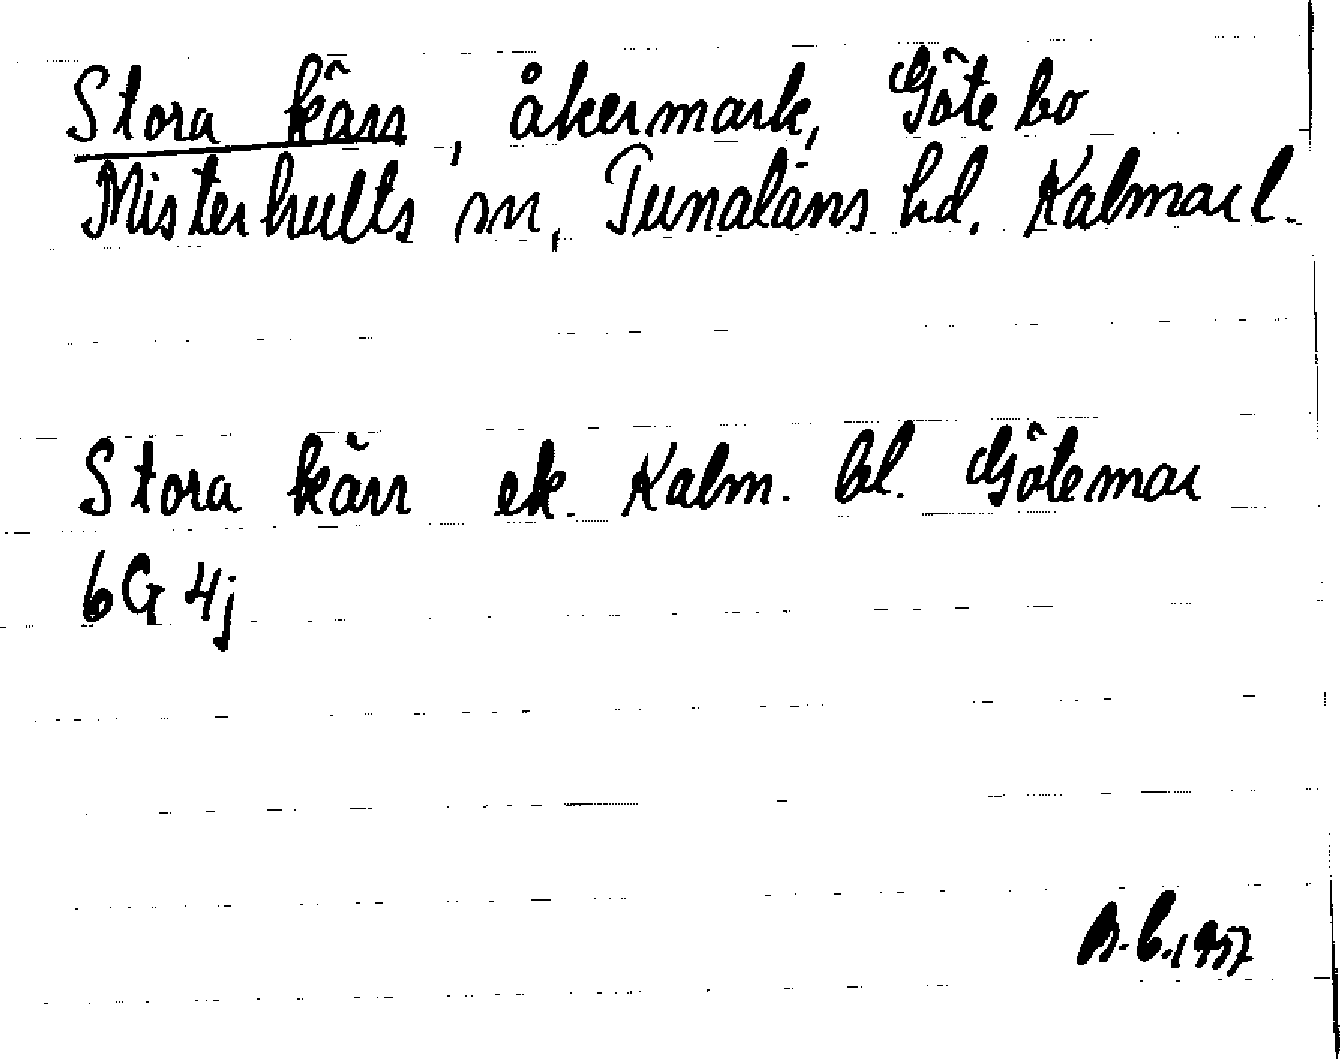 Stora kärr, åkermark, Götebo
Misterhults sn, Tunaläns hd. Kalmar l.
Stora kärr ek. Kalm. bl. Götemar
6G 4j
B.C. 1957